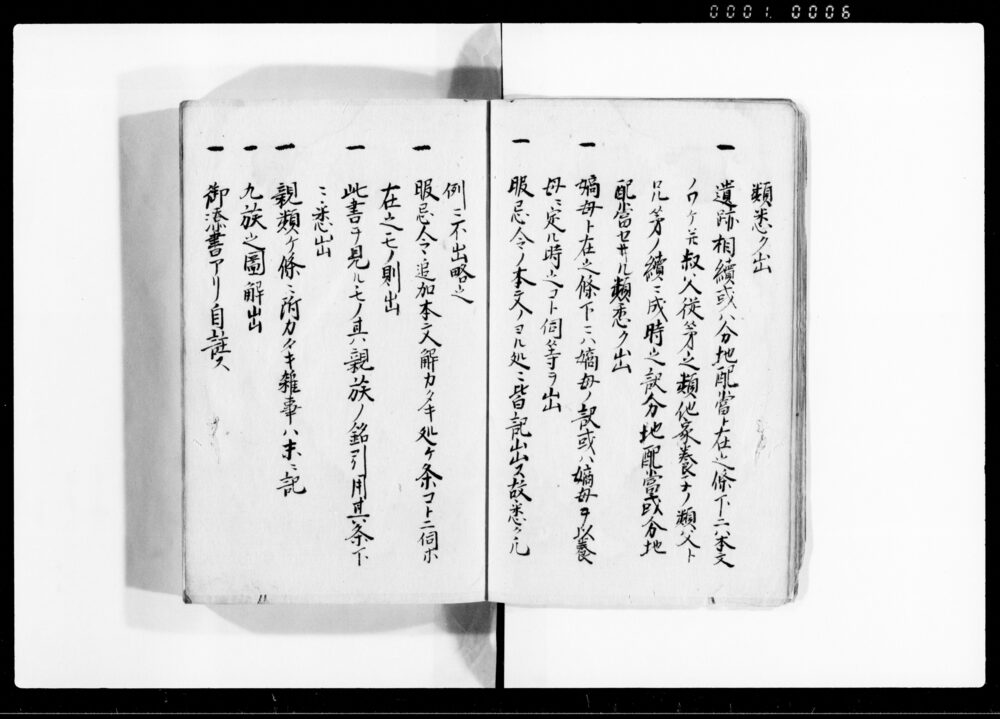 0001. 0006
類悉ク出
一 遺跡相續或ハ分地配當ト在之條下ニハ本文
ノワケ并叔父従弟之類他家養子ノ類父ト
兄弟ノ續ニ成時之訳分地配當或分地
配當セサル類悉ク出
一 嫡母ト在之條下ニハ嫡母ノ訳或ハ嫡母ヲ以養
母ニ定ル時之コト伺等ヲ出
一 服忌令ノ本文ノヨル処ニ皆記出ス故悉ク凡
例ニ不出略之
一 服忌令ニ追加本文解カタキ処ケ条コトニ伺ホ
在之モノ則出
一 此書ヲ見ルモノ其親族ノ銘引用其条下
ニ悉出
一 親類ケ條ニ附カタキ雑事ハ末ニ記
一 九族之圖解出
一 御添書アリ自註ス